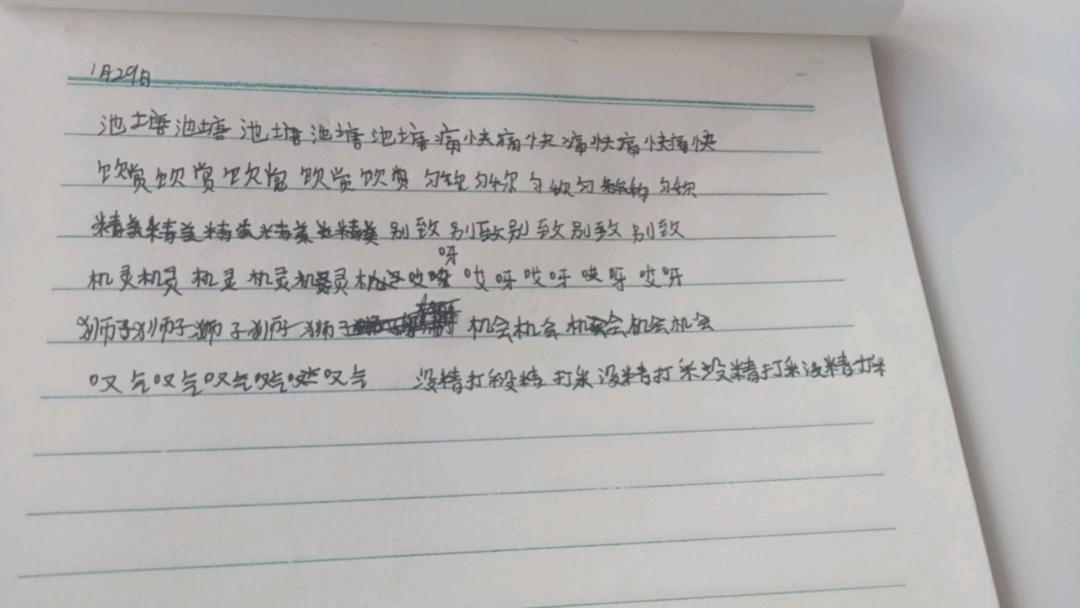 1月29日
池塘池塘池塘池塘池塘痛快痛快痛快痛快痛快
欣赏欣赏欣赏欣赏欣赏匀称匀称匀称匀称匀称
精美精美精美精美精美别致别致别致别致别致
呀
机灵机灵机灵机灵机灵哎呀哎呀哎呀哎呀哎呀
狮子狮子狮子狮子狮子机会机会机会机会机会
叹气叹气叹气叹气叹气叹气 没精打没精打采没精打采没精打采没精打采